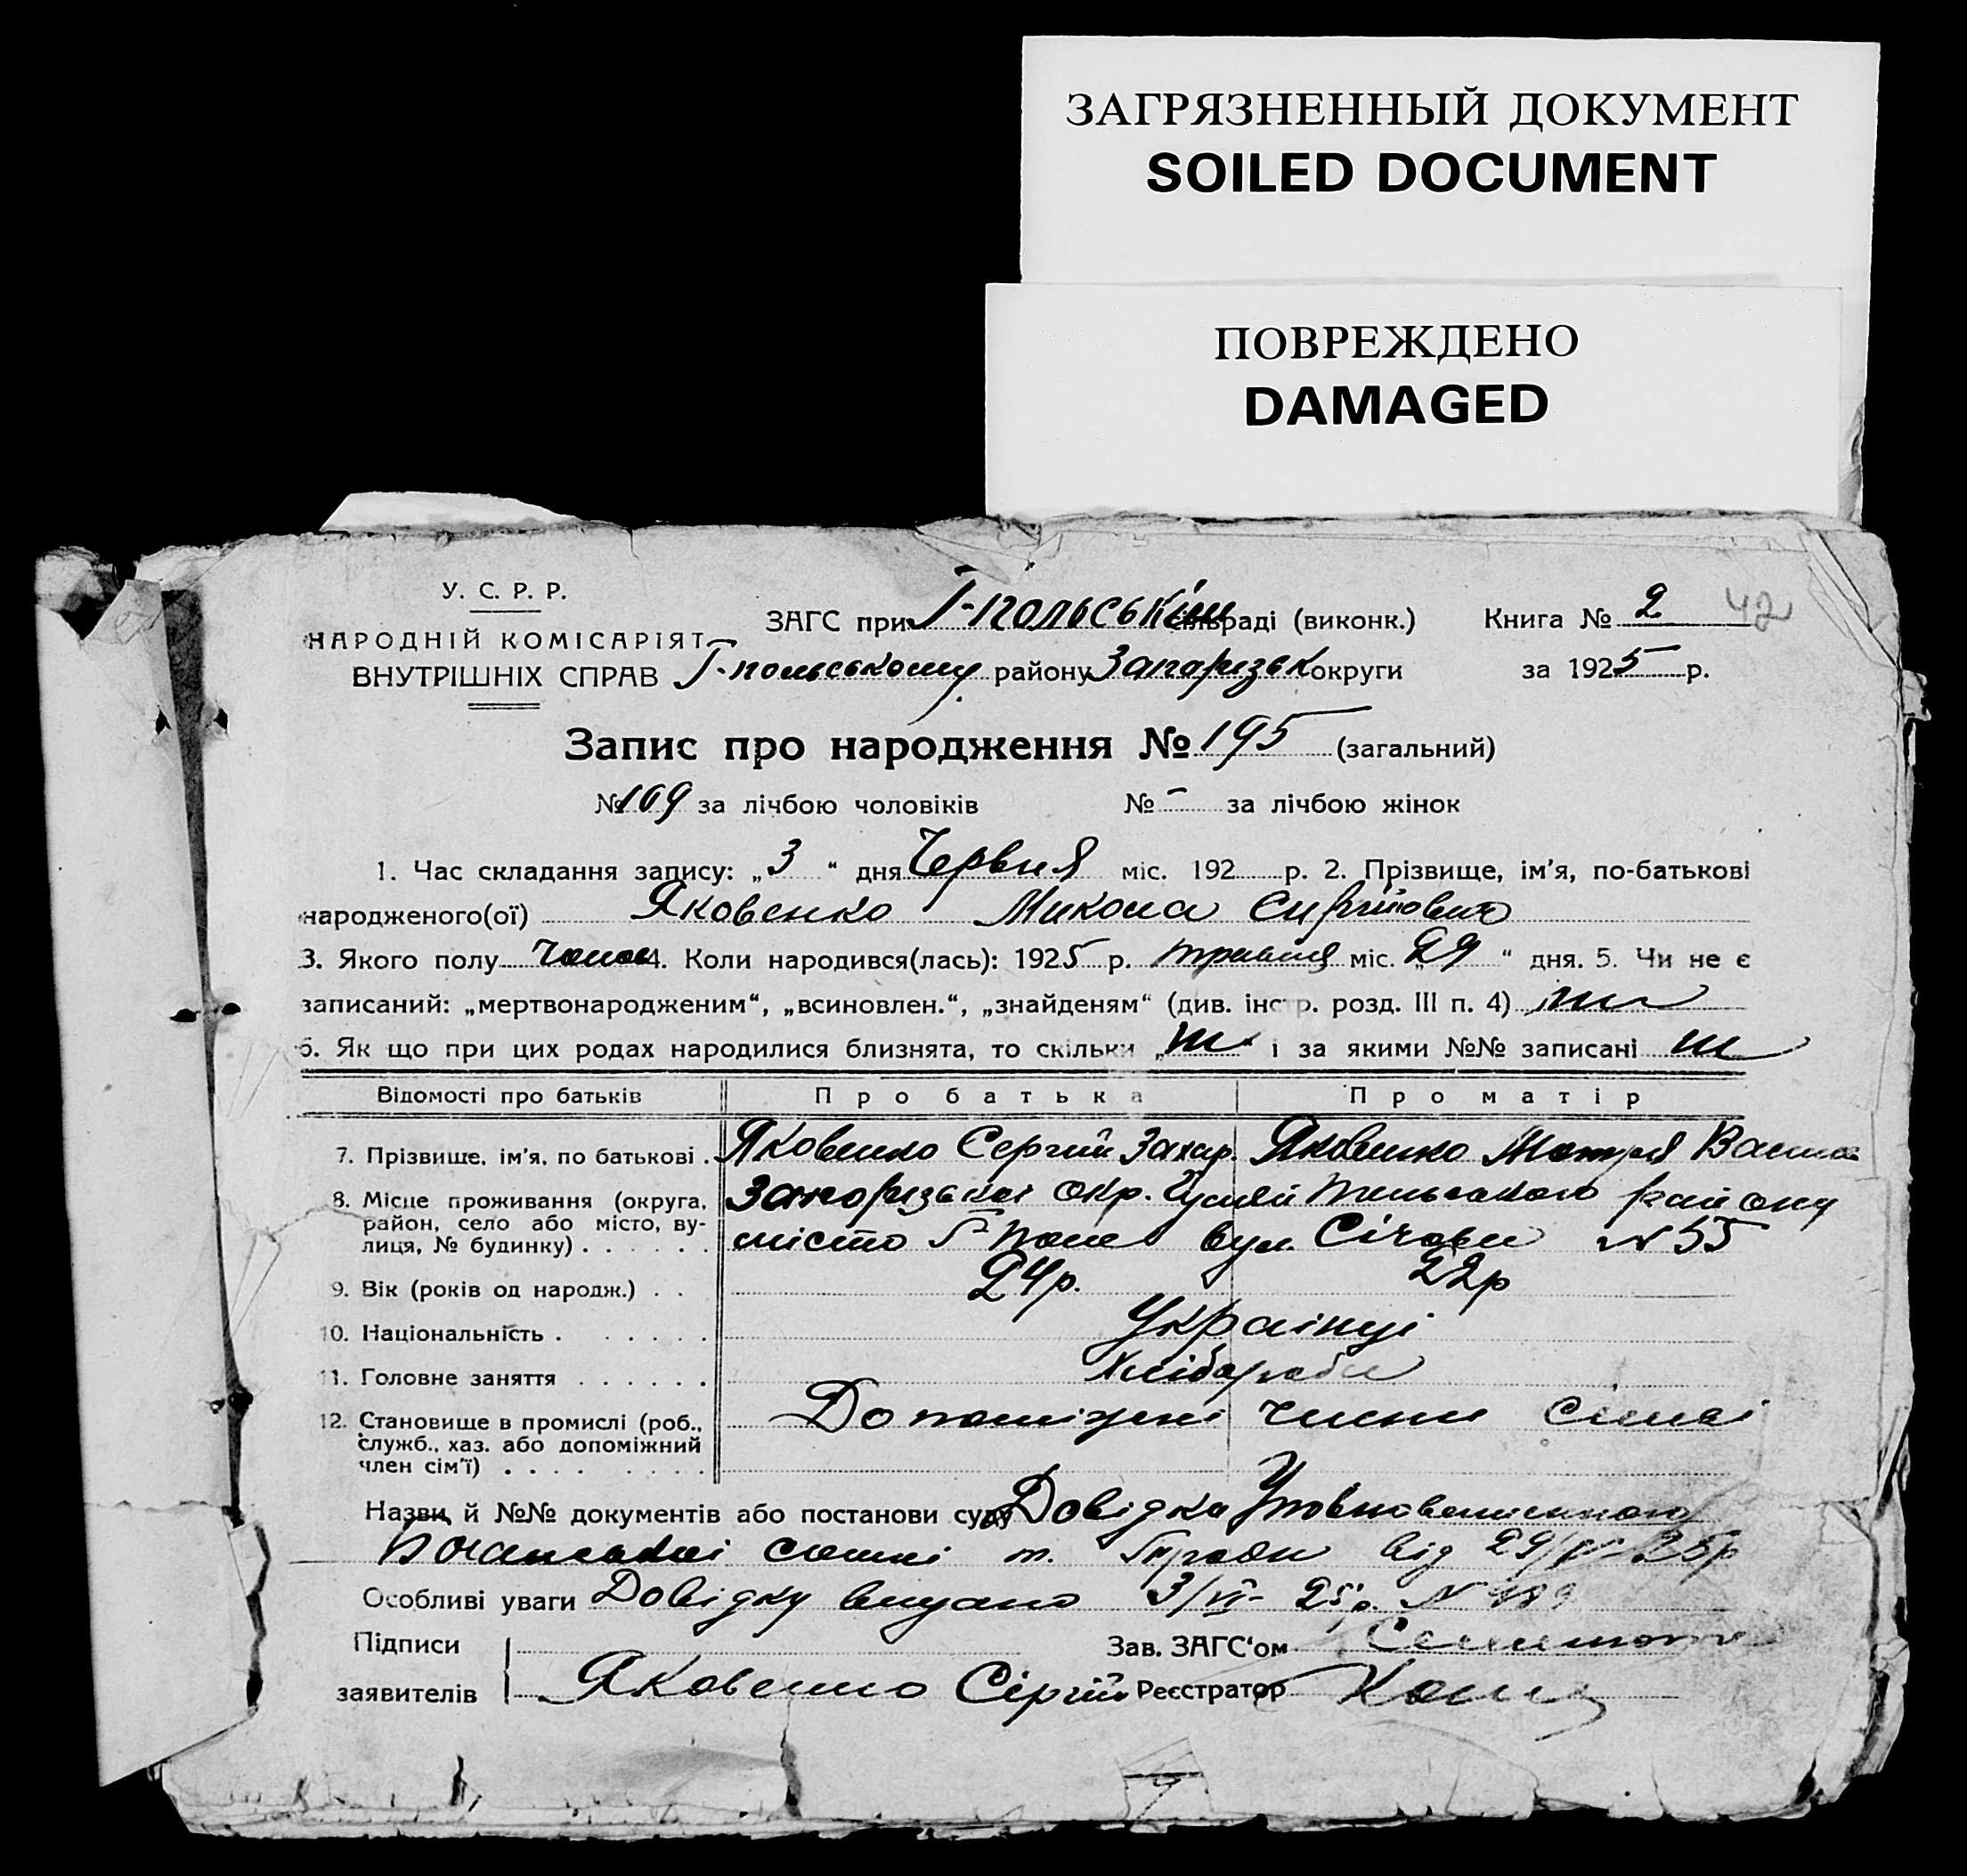 ЗАГРЯЗНЕННЫЙ ДОКУМЕНТ
SOILED DOCUMENT
ПОВРЕЖДЕНО
DAMAGED
У. С. Р. Р.
НАРОДНІЙ КОМІСАРІЯТ
ВНУТРІШНІХ СПРАВ
ЗАГС при Г-польській сільраді (виконк.) Книга № 2 42
Г-польському району Запорізьк округи за 1925 р.
Запис про народження № 195 (загальний)
№ 109 за лічбою чоловіків № - за лічбою жінок
1. Час складання запису: „3“ дня Червня міс. 192 р. 2. Прізвище, ім'я, по-батькові
народженого(ої) Яковенко Микола
3. Якого полу чолов 4. Коли народився(лась): 1925 р. травня міс. „29“ дня. 5. Чи не є
записаний: „мертвонародженим“, „всиновлен.“, „знайденям“ (див. інстр. розд. III п. 4) ні
6. Як що при цих родах народилися близнята, то скільки „ні“ і за якими №№ записані ні
Відомості про батьків Про батька Про матір
7. Прізвище, ім'я, по батькові . Яковенко Сергій Захар. Яковенко Мотря Васил
8. Місце проживання (округа, район, село або місто, вулиця, № будинку) . . . . . . Запорізькоі окр. району
місто Г-поле вул. Січова № 55
9. Вік (років од народж.) . . 24р. 22р
10. Національність . . . . . . Українці
11. Головне заняття . . . . . . Хлібороби
12. Становище в промислі (роб., служб., хаз. або допоміжний член сім'ї) . . . . Допоміжні члени сімьі
Назви й №№ документів або постанови суду Довідка Уповноваженого
сотні м. від 29/V 25р
Особливі уваги Довідку видано 3/VI- 25р. №
Підписи
заявителів Яковенко Сергій
Зав. ЗАГС'ом
Реєстратор